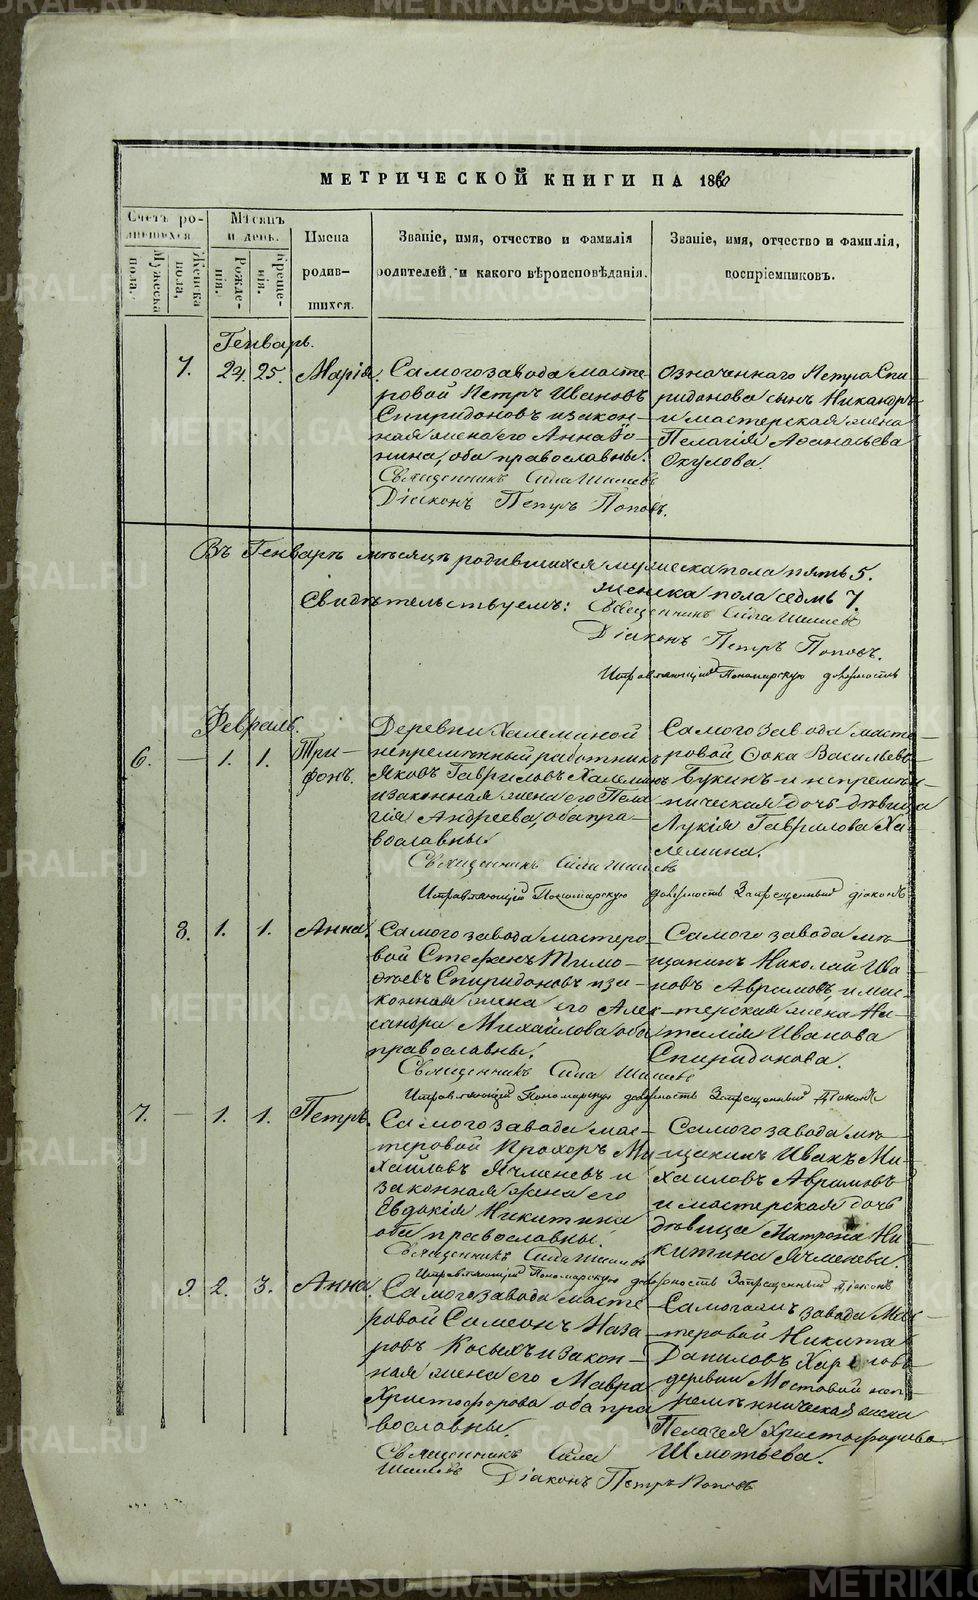 МЕТРИЧЕСКОЙ КНИГИ НА 1860
Счетъ ро-
дившихся.
Мѣсяцъ
и день.
Имена
родив-
шихся.
Званіе, имя, отчество и фамилія
родителей, и какого вѣроисповѣданія.
Званіе, имя, отчество и фамилія,
воспріемниковъ.
Мужеска
пола.
Женска
пола,
Рожде-
нія.
Креще-
нія.
Генварь.
7. 24. 25. Марія.
Самого завода масте-
ровой Петръ Ивановъ
Спиридоновъ и закон-
ная жена его Анна Іо-
нина, оба православны.
Священникъ Сила Шишевъ
Діаконъ Петръ Поповъ.
Означеннаго Петра Спи-
ридонова сынъ Никандръ
и мастерская жена
Пелагія Аѳанасьева
Окулова.
Въ Генварѣ мѣсяцѣ родившихся мужеска пола пять 5.
женска пола седмь 7.
Свидѣтельствуемъ: Священникъ Сила Шишевъ
Діаконъ Петръ Поповъ.
Исправляющій Пономарскую должность
Февраль.
6. — 1. 1. Три-
фонъ.
Деревни Халеминой
непремѣнный работникъ
Яковъ Гавриловъ Халеминъ
и законная жена его Пела-
гія Андреева, оба пра-
вославны.
Священникъ Сила Шишевъ
Исправляющій Пономарскую должность Запрещенный діаконъ
Самого завода масте-
ровой Ѳока Васильевъ
Букинъ и непремѣн-
ническая дочь дѣвица
Лукія Гаврилова Ха-
лемина.
8. 1. 1. Анна.
Самого завода мастеро-
вой Стефанъ Тимо-
ѳеевъ Спиридоновъ и за-
конная жена его Алек-
сандра Михайлова оба
православны.
Священникъ Сила Шишевъ
Исправляющій Пономарскую должность Запрещенный Діаконъ
Самого завода мѣ-
щанинъ Николай Ива-
новъ Аврамовъ, и мас-
терская жена На-
талія Иванова
Спиридонова.
7. — 1. 1. Петръ.
Самого завода мас-
теровой Прохоръ Ми-
хайловъ Ячменевъ и
законная жена его
Евдокія Никитина
оба православны.
Священникъ Сила Шишевъ
Исправляющій Пономарскую должность Запрещенный діаконъ
Самого завода мѣ-
щанинъ Иванъ Ми-
хаиловъ Аврамовъ
и мастерская дочь
дѣвица Матрона Ни-
китина Ячменева.
9. 2. 3. Анна.
Самого завода масте-
ровой Симеонъ Наза-
ровъ Косыхъ и закон-
ная жена его Мавра
Христофорова оба пра-
вославны.
Священникъ Сила
Шишевъ Діаконъ Петръ Поповъ
завода Мас-
теровой Никита
Даниловъ
деревни Мостовой неп-
ремѣнническая жена
Пелагея Христофорова
Шмотьева.
METRIKI.GASO-URAL.RU